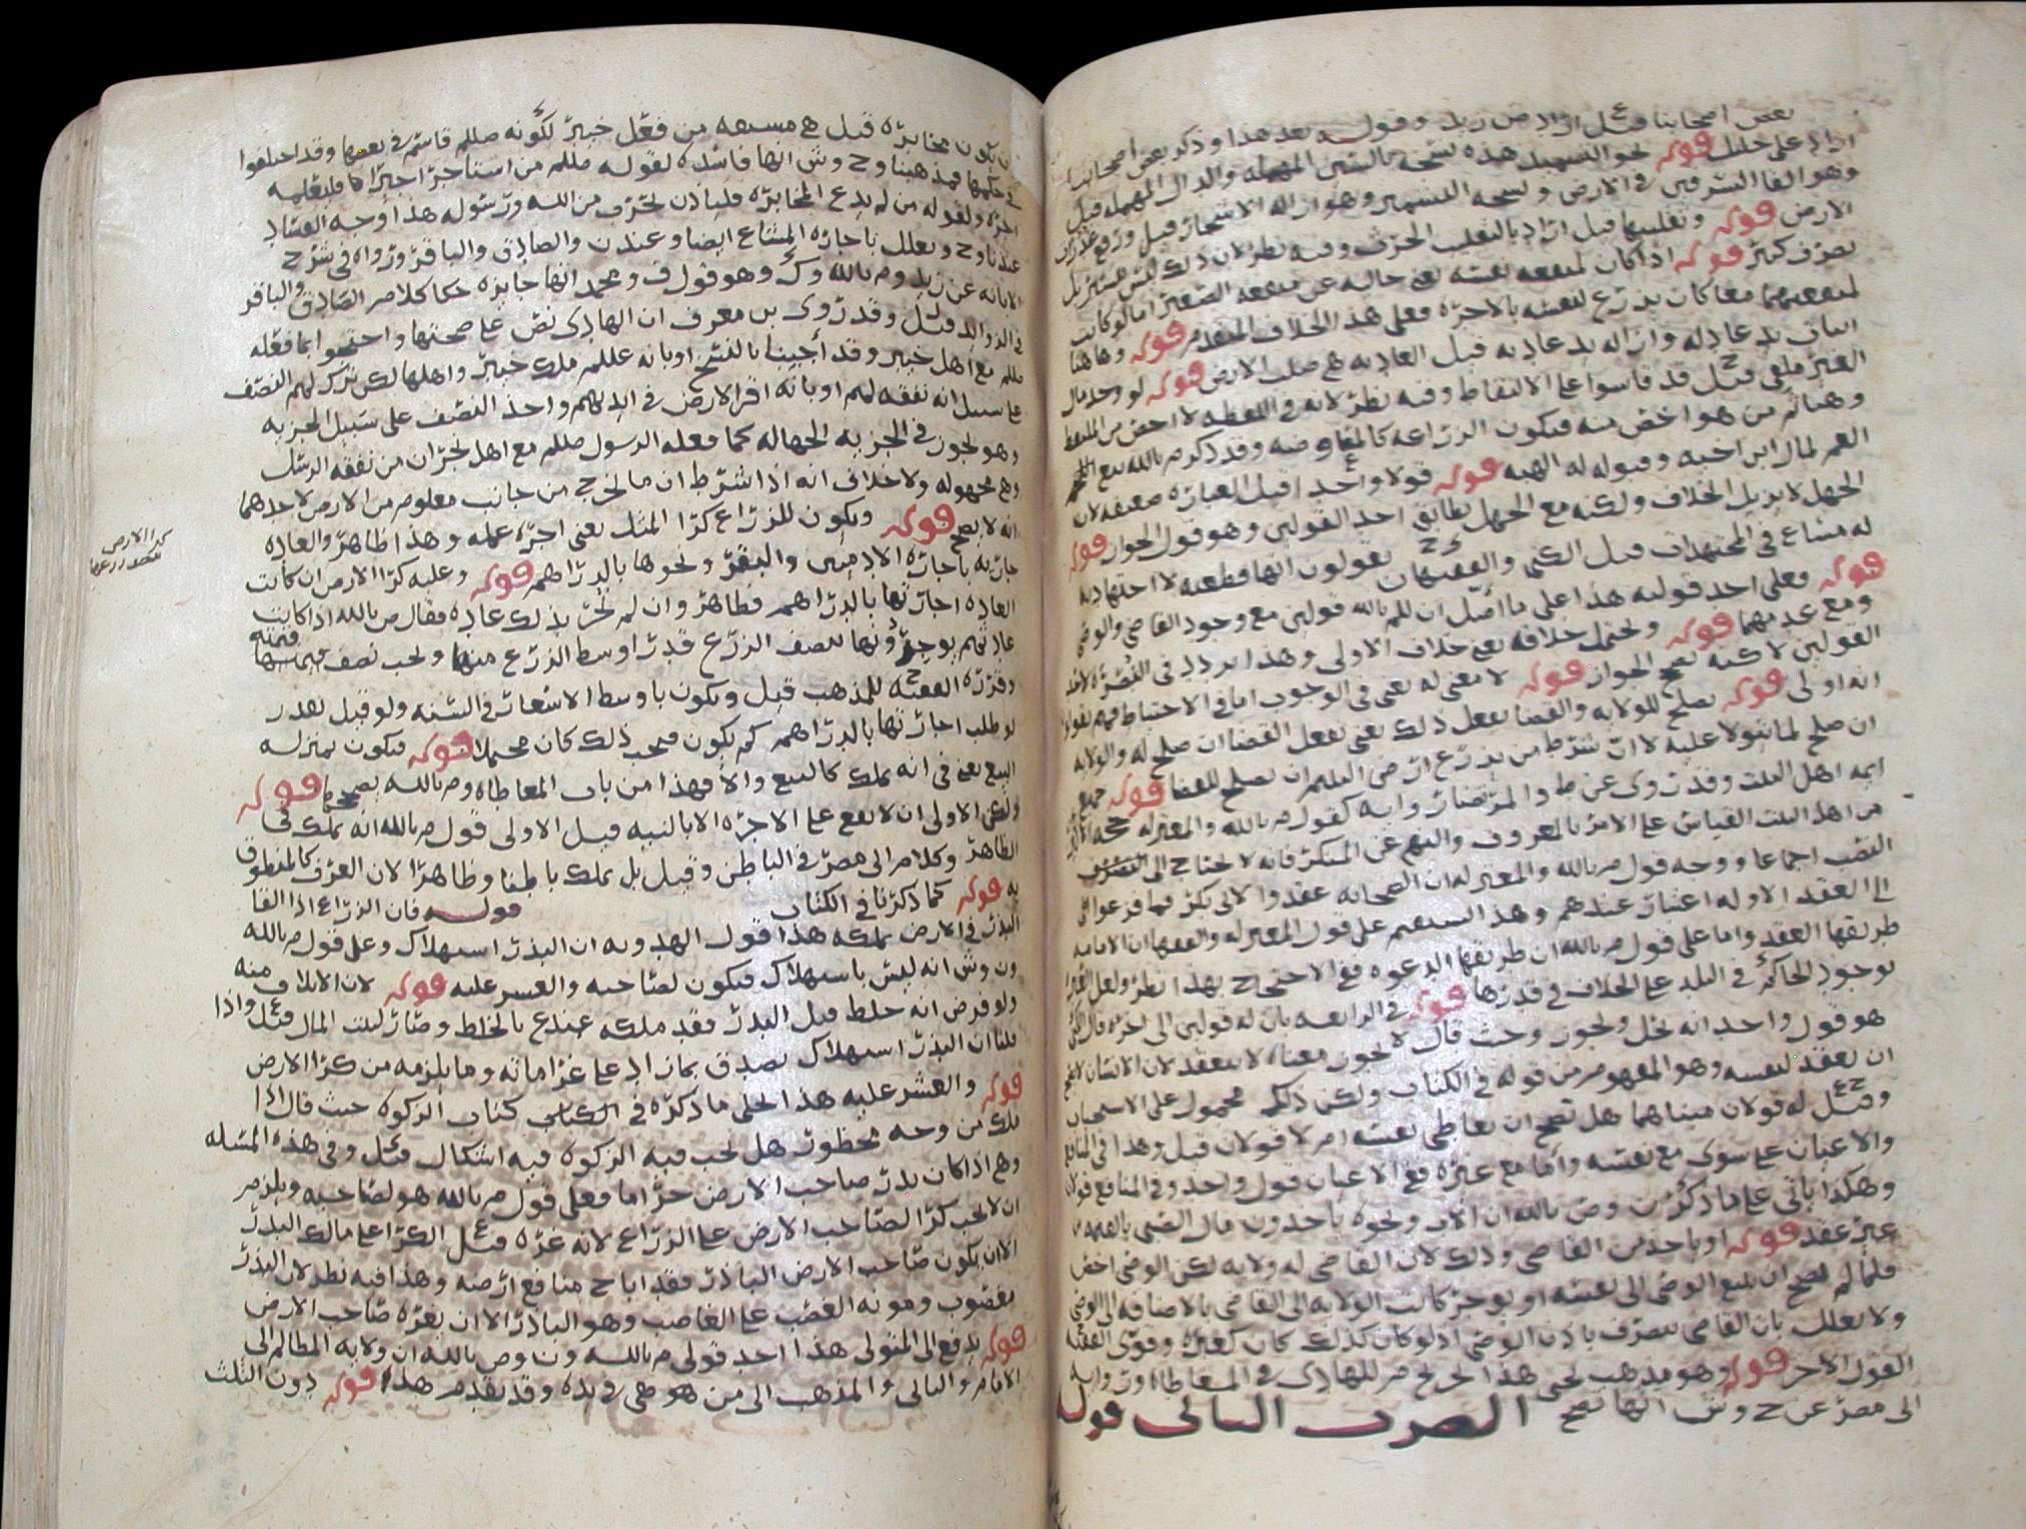 بعض اصحابنا قيل اراد ص زيد وقوله بعد هذا وذكر بعض اصحابنا
اراد على خليل قوله نحو التسميد هذه نسخه بالسين المهمله والدال المهمله قيل
وهو القا السرقين في الارض ونسخه التشجير وهو ازاله الاشجار قيل ورفع
الارض قوله وتقليبها قيل اراد بالتقليب الحرث وفيه نظر لان ذلك ليس
تصرف كبير قوله اذا كان لمنفعه نفسه يعني خاليه عن منفعه الصغير اما لو كانت
لمنفعتهما معا كان يزرع لنفسه بالاجره فعلى هذا الخلاف المتقدم قوله وهاهنا
الثاني يد عاديه وازاله يد عاديه قيل العاديه هي صلب الارض قوله لو وجد مال
الغير ملقى قيل قد قاسوا على الالتقاط وفيه نظر لانه في اللقطه لا اخص من الملتقط
وهنا ثم من هو اخص منه فيكون الزراعه كالمعاوضه وقد ذكر م بالله بيع
العم لمال ابن اخيه وقبوله له الهبه قوله قولا واحدا قيل العباره ضعيفه لان
الجهل لا يزيل الخلاف ولكنه مع الجهل يطابق احد القولين وهو قول الجواز قوله
له مشاع في المجتهدات قيل الكني والفقيهان ي ح يقولون انها قطعيه لا اجتهاديه
قوله فعلى احد قوليه هذا على ما اصل ان للم بالله قولين مع وجود القاضي والوصي
ومع عدمهما قوله ويحتمل خلافه يعني خلاف الاولى وهذا تردد في
القولين لا كنه يصح الجواز قوله لا معنى له يعني في الوجوب اما في الاحتياط فهم يقولون
انه اولى قوله يصلح للولايه والقضا يفعل ذلك يعني يفعل القضا ان صلح له والولايه
ان صلح لما يتولا عليه لا ان شرط من يزرع ارض اليتيم ان يصلح للقضا قوله جميع
ايمه اهل البيت وقد روى عن ط والمرتضى روايه كقول م بالله والمعتزله حجه
من اهل البيت القياس على الامر بالمعروف والنهي عن المنكر فانه لا يحتاج الى
النصب اجماعا ووجه قول م بالله والمعتزله ان الصحابه عقدوا لابي بكر فيما فزعوا
الى العقد الاوله اعتبار عندهم وهذا يستقيم على قول المعتزله والفقها ان الامامه
طريقها العقد واما على قول م بالله ان طريقها الدعوه ففي الاحتجاج بهذا نظر
بوجود الحاكم في البلد على الخلاف في قدرها قوله في الرابعه بان له قولين
هو قول واحد انه يحل ويجوز وحيث قال لا يجوز معناه لا ينعقد لان الانسان لا يصح
ان يعقد لنفسه وهو المفهوم من قوله في الكتاب ولكن ذلك محمول على الاستحباب
وقيل له قولان مبناهما هل يصح ان يعاطي نفسه ام لا قولان قيل وهذا في المنافع
والاعيان على سوى مع نفسه واما مع غيره ففي الاعيان قول واحد وفي المنافع قولان
وهكذا ياتي على ما ذكره ن وص بالله ان الاب ونحوه ياخذون مال الصبي بالقيمه
غير عقد قوله او ياخذ من القاضي وذلك لان القاضي له ولايه لكن الوصي اخص
فلما لم يصح ان يبيع الوصي الى نفسه او يوجر كانت الولايه الى القاضي بالاضافه الى الوصي
ولا يعلل بان القاضي يتصرف باذن الوصي اذ لو كان كذلك كان كغيره وقوى الفقيه
القول الاخر قوله وهو مذهب يحيى هذا تخريج م للهادي في المعاطاه وروايه
الى مضر عن ح وش انها تصح الضرب الثاني قوله
ان تكون مخابره قيل هي مشتقه من فعل خيبر لكونه صللم قاسم في بعضها وقد اختلفوا
في حكمها فمذهبنا وح وش انها فاسده لقوله صللم من استاجر اجيرا فليعلمه
اجره ولقوله من لم يدع المخابره فلياذن بحرب من الله ورسوله هذا وجه الفساد
عندنا وح ويعلل باجاره المشاع ايضا وعند ن والصادق والباقر ورواه في شرح
الابانه عن زيد وم بالله وك وهو قول ف ومحمد انها جايزه حكا كلام الصادق والباقر
في الزوايد قيل وقد روى بن معرف ان الهادي نص على صحتها واحتجوا بما فعله
صللم مع اهل خيبر وقد اجيبنا بالنسخ او بانه عللم ملك خيبر واهلها لكن ترك لهم النصف
على سبيل انه نفقه لهم او بانه اقر الارض في ايديهم واخذ النصف على سبيل الجزيه
وهو يجوز في الجزيه الجهاله كما فعله الرسول صللم مع اهل نجران من نفقه الرسل
وهي مجهوله ولا خلاف انه اذا شرط ان ما يخرج من جانب معلوم من الارض لاحدهما
انه لا يصح قوله ويكون للزراع كرا المثل يعني اجره عمله وهذا ظاهر والعاده
جاريه باجاره الادميين والبقر ونحوها بالدراهم قوله وعليه كرا الارض ان كانت
العاده اجارتها بالدراهم فظاهر وان لم تجر بذلك عاده فقال ص بالله اذا كانت
عادتهم يوجرونها بنصف الزرع قدر اوسط الزرع منها ويجب نصف قيمته
وقرره الفقيه ح للمذهب قيل ويكون باوسط الاسعار في السنه ولو قيل يقدر
لو طلب اجارتها بالدراهم كم يكون فيجب ذلك كان محتملا قوله فيكون بمنزله
البيع يعني في انه يملك كالبيع والا فهذا من باب المعاطاه وم بالله يصححها قوله
ولكن الاولى ان لا يقع على الاجره الا بالنيه قيل الاولى قول م بالله انه يملك في
الظاهر وكلام ابي مضر في الباطن وقيل بل يملك باطنا وظاهرا لان العرف كالمنطوق
به قوله كما ذكرنا في الكتاب قوله فان الزراع اذا القا
البذر في الارض يملكه هذا قول الهدويه ان البذر استهلاك وعلى قول م بالله
ون وش انه ليس باستهلاك فيكون لصاحبه والعشر عليه قوله لان الاتلاف منه
ولو فرض انه خلط قبل البذر فقد ملكه عندع بالخلط وصار لبيت المال قيل واذا
قلنا ان البذر استهلاك تصدق بما زاد على غراماته وما يلزمه من كرا الارض
قوله والعشر عليه هذا الجلي ما ذكره في الكتاب كتاب الزكوه حيث قال اذا
ملك من وجه محظور هل تجب فيه الزكوه فيه اشكال قيل وفي هذه المسله
وهي اذا كان بذر صاحب الارض حراما فعلى قول م بالله هو لصاحبه ويلزم
ان لا يجب كرا لصاحب الارض على الزراع لانه غره قيل الكرا على مالك البذر
الا ان يكون صاحب الارض الباذر فقد اباح منافع ارضه وهذا فيه نظر لان البذر
مغصوب ومونه الغصب على الغاصب وهو الباذر الا ان يغره صاحب الارض
قوله يدفع الى المتولي هذا احد قولي م بالله ون وص بالله ان ولايه المظالم الى
الامام والثاني والمذهب الى من هو هي في يده وقد تقدم هذا قوله دون الثلث
كرا الارض